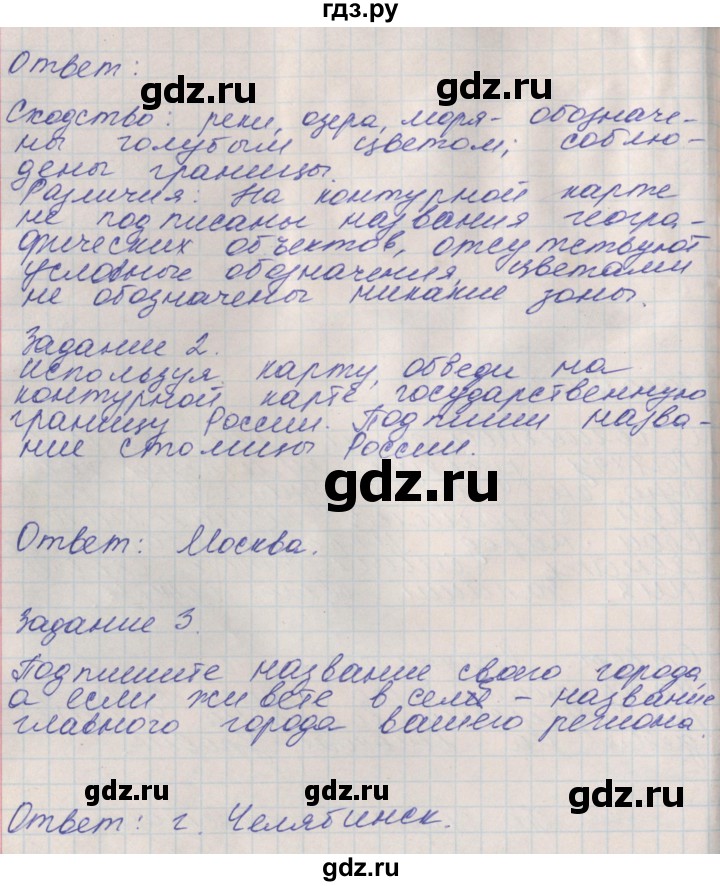 гдз.ру
Ответ:
gdz.ru gdz.ru
Сходство: реки, озера, моря- обозначе-
ны голубым цветом; соблю-
дены границы.
Различия: На контурной карте
не подписаны названия геогра-
фических объектов, отсутствуют
условные обозначения, цветами
не обозначены никакие зоны.
Задание 2.
Используя карту, обведи на
контурной карте государственную
границу России. Подпиши назва-
ние столицы России.
gdz.ru
Ответ: Москва.
Задание 3.
Подпишите название своего города,
а если живете в селе - название
главного города вашего региона.
gdz.ru gdz.ru
Ответ: г. Челябинск.
gdz.ru